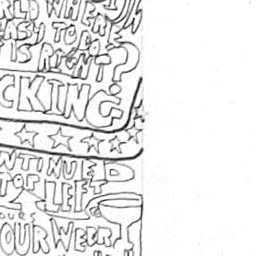 RLD WHERE
EASY TO DO
IS RIGHT?
CKING
NTINUED
TOP LEFT
YOURS
OUR WEEK